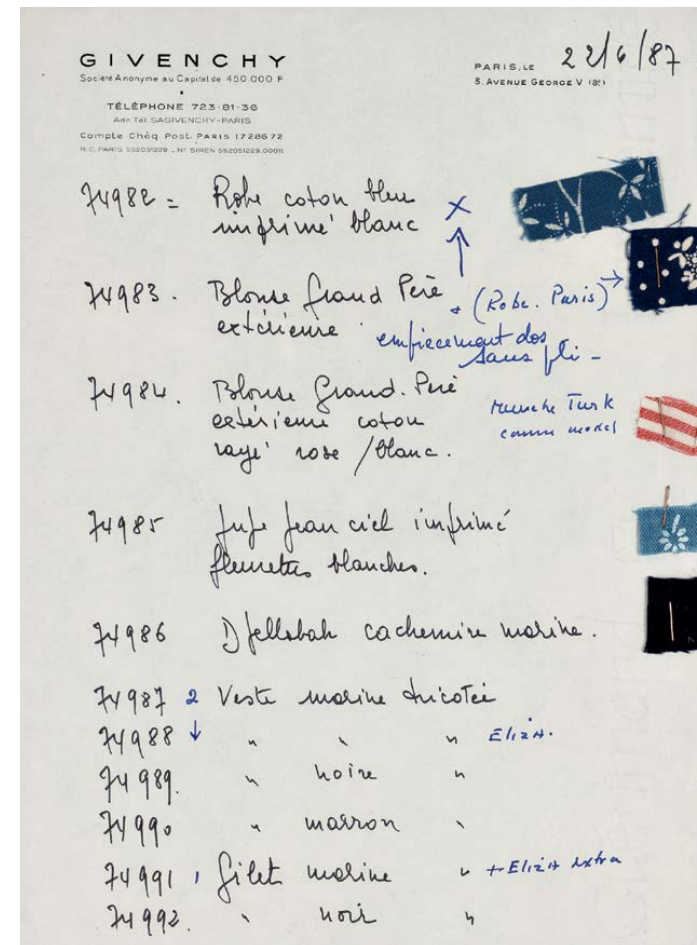 GIVENCHY
Société Anonyme au Capital de 450.000 F
TÉLÉPHONE 723-81-36
Adr. Tél. SAGIVENCHY-PARIS
Compte Chèq. Post. PARIS 1728672
R.C. PARIS 552051229 _ N° SIREN 552051229.00011
PARIS, LE 22/6/87
3. AVENUE GEORGE V (8e)
74982 = Robe coton bleu
imprimé blanc X
74983. Blouse Grand Père + (Robe. Paris) →
extérieure. empiecement dos
sans pli -
74984. Blouse Grand. Père
extérieure coton
rayé rose / blanc.
manche Turk
comme model
74985 Jupe jean ciel imprimé
fleurettes blanches.
74986 Djellabah cachemire marine.
74987 2 Veste marine tricotée
74988 ↓ " " " Eliza.
74989. " noire "
74990 " marron "
74991 1 Gilet marine " + Eliza extra
74992. " noir "